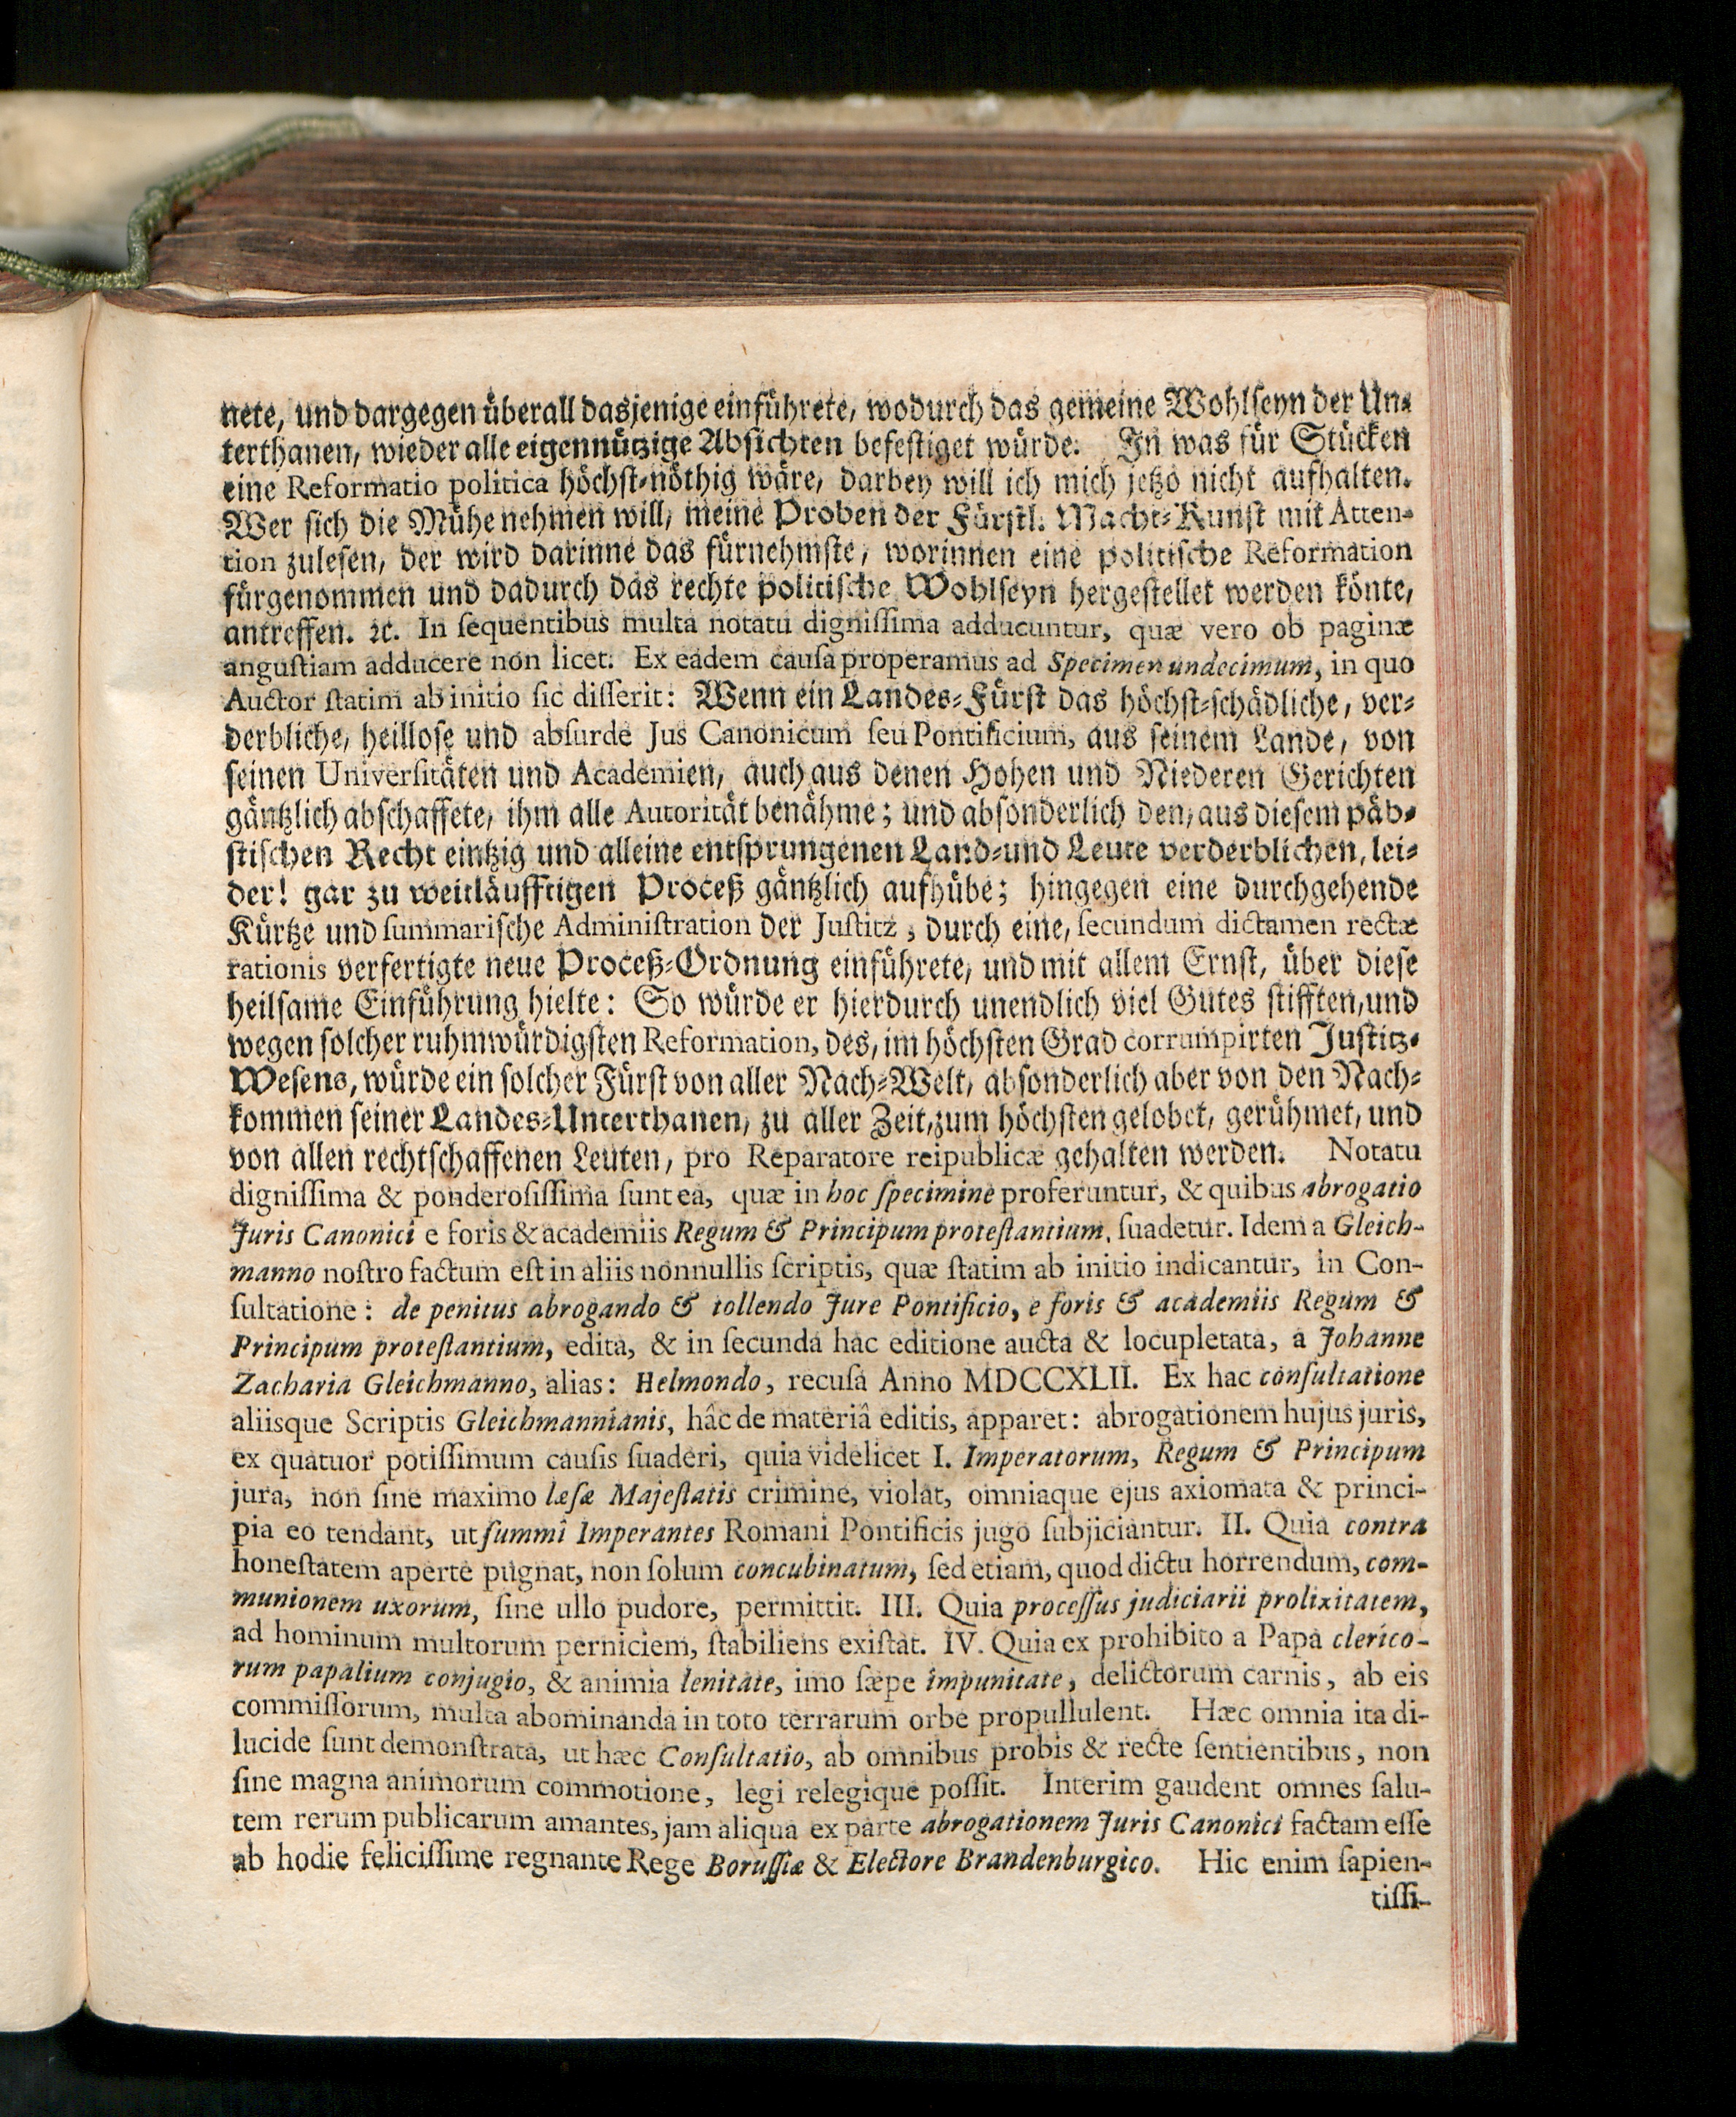 nete, und dargegen überall dasjenige einführete, wodurch das gemeine Wohlseyn der Un-
terthanen, wieder alle eigennützige Absichten befestiget würde. In was für Stücken
eine Reformatio politica höchst-nöthig wäre, darbey will ich mich jetzo nicht aufhalten.
Wer sich die Mühe nehmen will, meine Proben der Fürstl. Macht-Kunst mit Atten-
tion zulesen, der wird darinne das fürnehmste, worinnen eine politische Reformation
fürgenommen und dadurch das rechte politische Wohlseyn hergestellet werden könte,
antreffen. ꝛc. In ſequentibus multa notatu digniſſima adducuntur, quæ vero ob paginæ
anguſtiam adducere non licet. Ex eadem cauſa properamus ad Specimen undecimum, in quo
Auctor ſtatim ab initio ſic diſſerit: Wenn ein Landes-Fürst das höchst-schädliche, ver-
derbliche, heillose und abſurde Jus Canonicum ſeu Pontificium, aus seinem Lande, von
seinen Universitäten und Academien, auch aus denen Hohen und Niederen Gerichten
gäntzlich abschaffete, ihm alle Autorität benähme; und absonderlich den, aus diesem päb-
stischen Recht eintzig und alleine entsprungenen Land-und Leute verderblichen, lei-
der! gar zu weitläufftigen Proceß gäntzlich aufhübe; hingegen eine durchgehende
Kürtze und ſummarische Adminiſtration der Juſtitz, durch eine, ſecundum dictamen rectæ
rationis verfertigte neue Proceß-Ordnung einführete, und mit allem Ernst, über diese
heilsame Einführung hielte: So würde er hierdurch unendlich viel Gutes stifften, und
wegen solcher ruhmwürdigsten Reformation, des, im höchsten Grad corrumpirten Justitz-
Wesens, würde ein solcher Fürst von aller Nach-Welt, absonderlich aber von den Nach-
kommen seiner Landes-Unterthanen, zu aller Zeit, zum höchsten gelobet, gerühmet, und
von allen rechtschaffenen Leuten, pro Reparatore reipublicæ gehalten werden. Notatu
digniſſima & ponderoſiſſima ſunt ea, quæ in hoc ſpecimine proferuntur, & quibus abrogatio
Juris Canonici e foris & academiis Regum & Principum proteſtantium, ſuadetur. Idem a Gleich-
manno noſtro factum eſt in aliis nonnullis ſcriptis, quæ ſtatim ab initio indicantur, in Con-
ſultatione: de penitus abrogando & tollendo Jure Pontificio, e foris & academiis Regum &
Principum proteſtantium, edita, & in ſecunda hac editione aucta & locupletata, a Johanne
Zacharia Gleichmanno, alias: Helmondo, recuſa Anno MDCCXLII. Ex hac conſultatione
aliisque Scriptis Gleichmannianis, hâc de materiâ editis, apparet: abrogationem hujus juris,
ex quatuor potiſſimum cauſis ſuaderi, quia videlicet I. Imperatorum, Regum & Principum
jura, non ſine maximo læſæ Majeſtatis crimine, violat, omniaque ejus axiomata & princi-
pia eo tendant, ut ſummi Imperantes Romani Pontificis jugo ſubjiciantur. II. Quia contra
honeſtatem aperte pugnat, non ſolum concubinatum, ſed etiam, quod dictu horrendum, com-
munionem uxorum, ſine ullo pudore, permittit. III. Quia proceſſus judiciarii prolixitatem,
ad hominum multorum perniciem, ſtabiliens exiſtat. IV. Quia ex prohibito a Papa clerico-
rum papalium conjugio, & animia lenitate, imo ſæpe impunitate, delictorum carnis, ab eis
commiſſorum, multa abominanda in toto terrarum orbe propullulent. Hæc omnia ita di-
lucide ſunt demonſtrata, ut hæc Conſultatio, ab omnibus probis & recte ſentientibus, non
ſine magna animorum commotione, legi relegique poſſit. Interim gaudent omnes ſalu-
tem rerum publicarum amantes, jam aliqua ex parte abrogationem Juris Canonici factam eſſe
ab hodie feliciſſime regnante Rege Boruſſiæ & Electore Brandenburgico. Hic enim ſapien-
tiſſi-